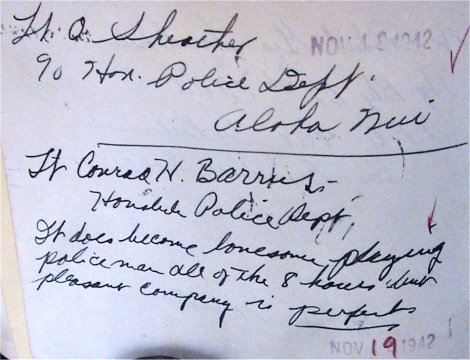 Lt. Q. Sheather NOV 18 1942
% Hon. Police Dept.
Aloha Nui
Lt Conrad H. Barrus -
Honolulu Police Dept.
It does become lonesome playing
policeman all of the 8 hours but
pleasant company is perfect
NOV 19 1942